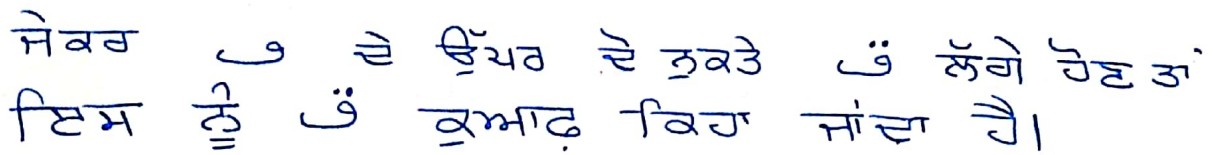 ਜੇਕਰ ٯ ਦੇ ਉੱਪਰ ਦੋ ਨੁਕਤੇ ق ਲੱਗੇ ਹੋਣ ਤਾਂ
ਇਸ ਨੂੰ ق ਕੁਆਫ਼ ਕਿਹਾ ਜਾਂਦਾ ਹੈ।